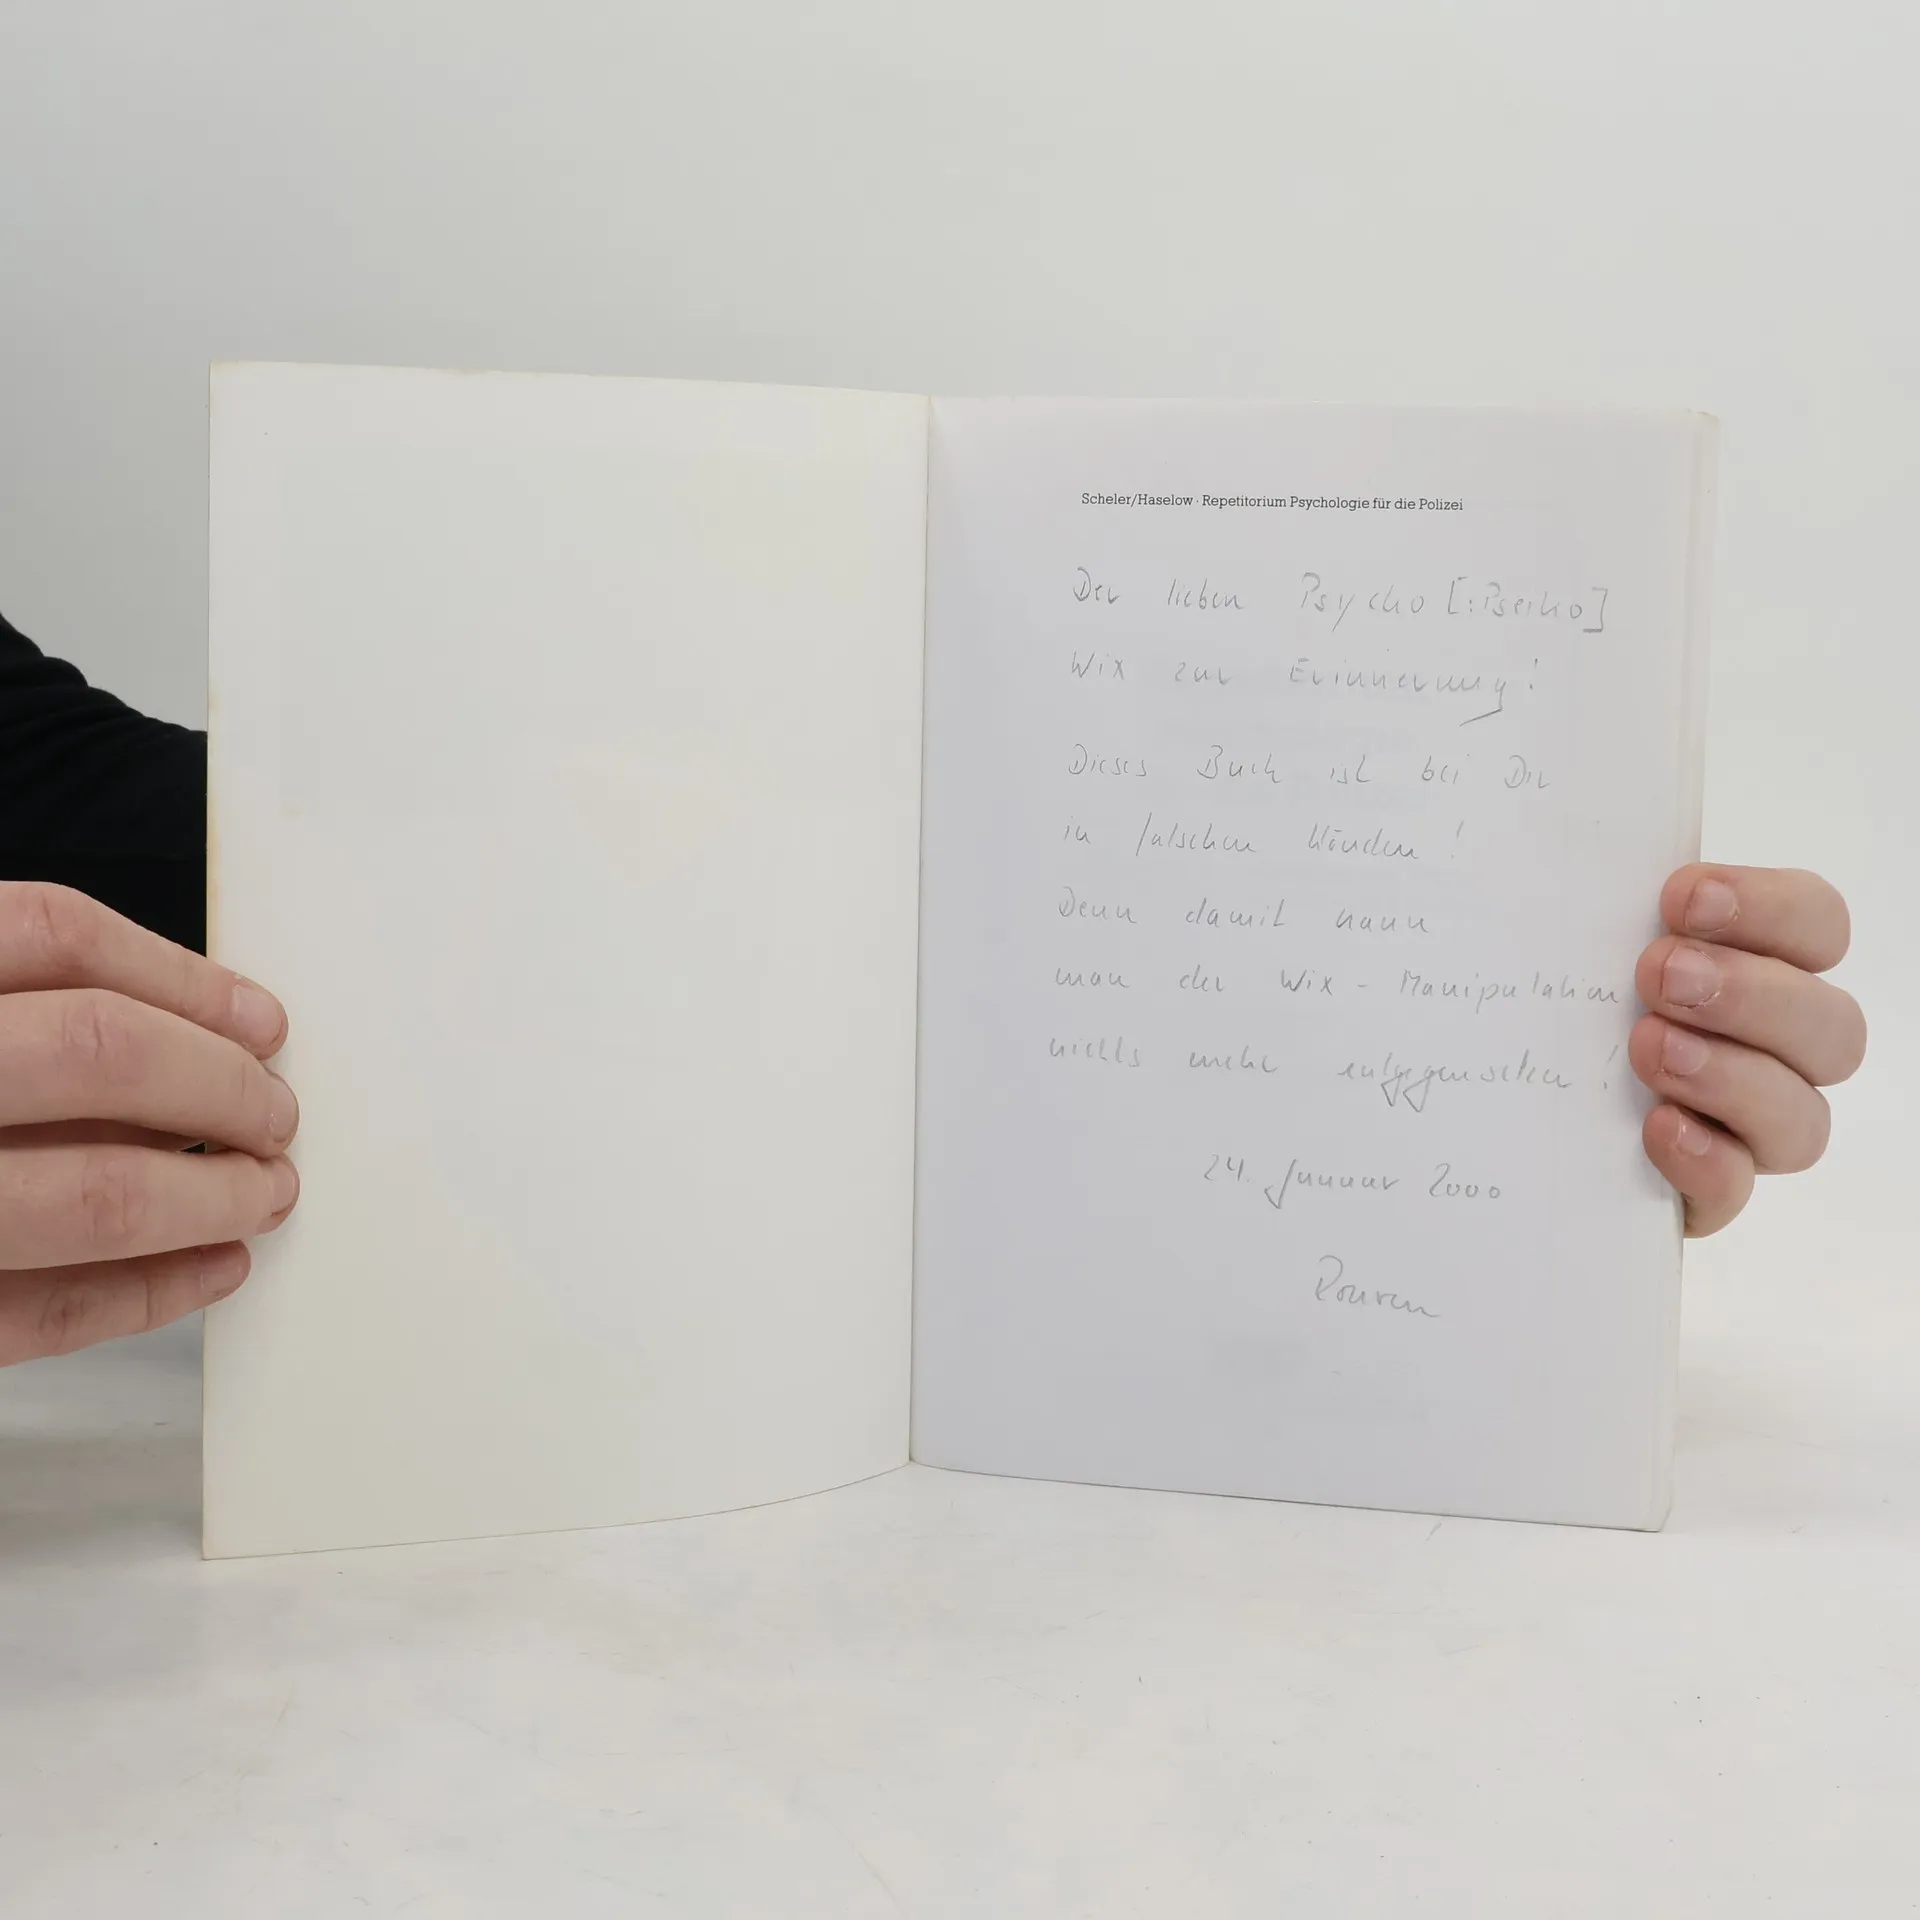 Scheler/Haselow · Repetitorium Psychologie für die Polizei
Der lieben Psycho [:Pseiko]
Wix zur Erinnerung!
Dieses Buch ist bei Dir
in falschen Händen!
Denn damit kann
man der Wix - Manipulation
nichts mehr entgegensetzen!
24. Januar 2000